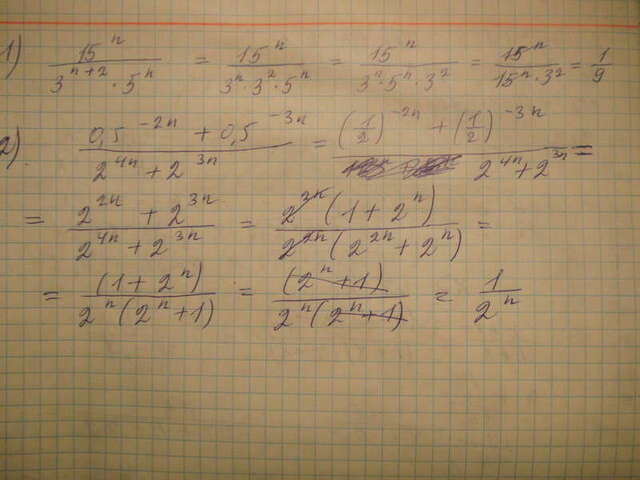 1) 15^n / (3^(n+2) · 5^n) = 15^n / (3^n · 3^2 · 5^n) = 15^n / (3^n · 5^n · 3^2) = 15^n / (15^n · 3^2) = 1/9
2). (0,5^(-2n) + 0,5^(-3n)) / (2^(4n) + 2^(3n)) = ((1/2)^(-2n) + (1/2)^(-3n)) / (2^(4n) + 2^(3n)) =
= (2^(2n) + 2^(3n)) / (2^(4n) + 2^(3n)) = 2^(2n) (1 + 2^n) / (2^(2n) (2^(2n) + 2^n)) =
= (1 + 2^n) / (2^n (2^n + 1)) = (2^n + 1) / (2^n (2^n + 1)) = 1 / 2^n